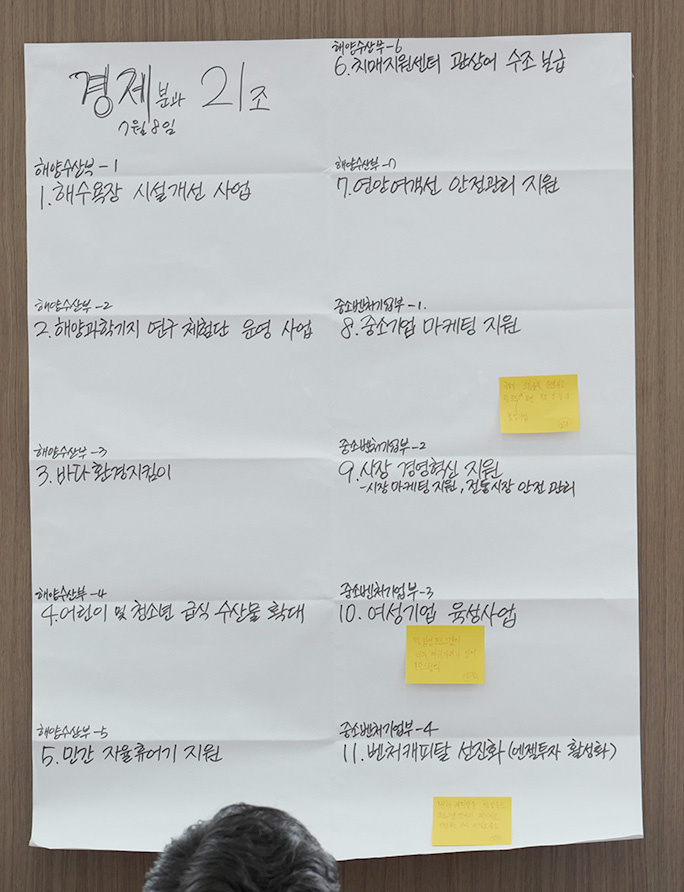 경제분과 21조
7월 8일
해양수산부-1
1. 해수욕장 시설개선 사업
해양수산부-2
2. 해양과학기지 연구 체험단 운영 사업
해양수산부-3
3. 바다환경지킴이
해양수산부-4
4. 어린이 및 청소년 급식 수산물 확대
해양수산부-5
5. 민간 자율휴어기 지원
해양수산부-6
6. 치매지원센터 관상어 수조 보급
해양수산부-7
7. 연안여객선 안전관리 지원
중소벤처기업부-1.
8. 중소기업 마케팅 지원
중소벤처기업부-2
9. 시장 경영혁신 지원
-시장 마케팅 지원, 전통시장 안전 관리
중소벤처기업부-3
10. 여성기업 육성사업
중소벤처기업부-4
11. 벤처캐피탈 선진화 (엔젤투자 활성화)